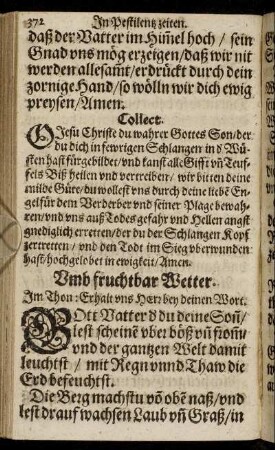 372 In Pestilentz zeiten.
daß der Vatter im Him̃el hoch / sein
Gnad vns mög erzeigen / daß wir nit
werden allesam̃t / erdrückt durch dein
zornige Hand / so wölln wir dich ewig
preysen / Amen.
Collect.
O Jesu Christe du wahrer Gottes Son / der
du dich in fewrigen Schlangen in d Wü-
sten hast fürgebildet / vnd kanst alle Gifft vñ Teuf-
fels Biß heilen vnd vertreiben / wir bitten deine
milde Güte / du wollest vns durch deine liebe En-
gel für dem Verderber vnd seiner Plage bewah-
ren / vnd vns auß Todes gefahr vnd Hellen angst
gnediglich erretten / der du der Schlangen Kopf
zertretten / vnd den Todt im Sieg vberwunden
hast / hochgelobet in ewigkeit / Amen.
Vmb fruchtbar Wetter.
Im Thon: Erhalt vns HErr bey deinen Wort.
GOtt Vatter d du deine Soñ /
lest scheinē vber böß vñ from̃ /
vnd der gantzen Welt damit
leuchtst / mit Regn vnnd Thaw die
Erd befeuchtst.
Die Berg machstu vō obē naß / vnd
lest drauf wachsen Laub vñ Graß / in